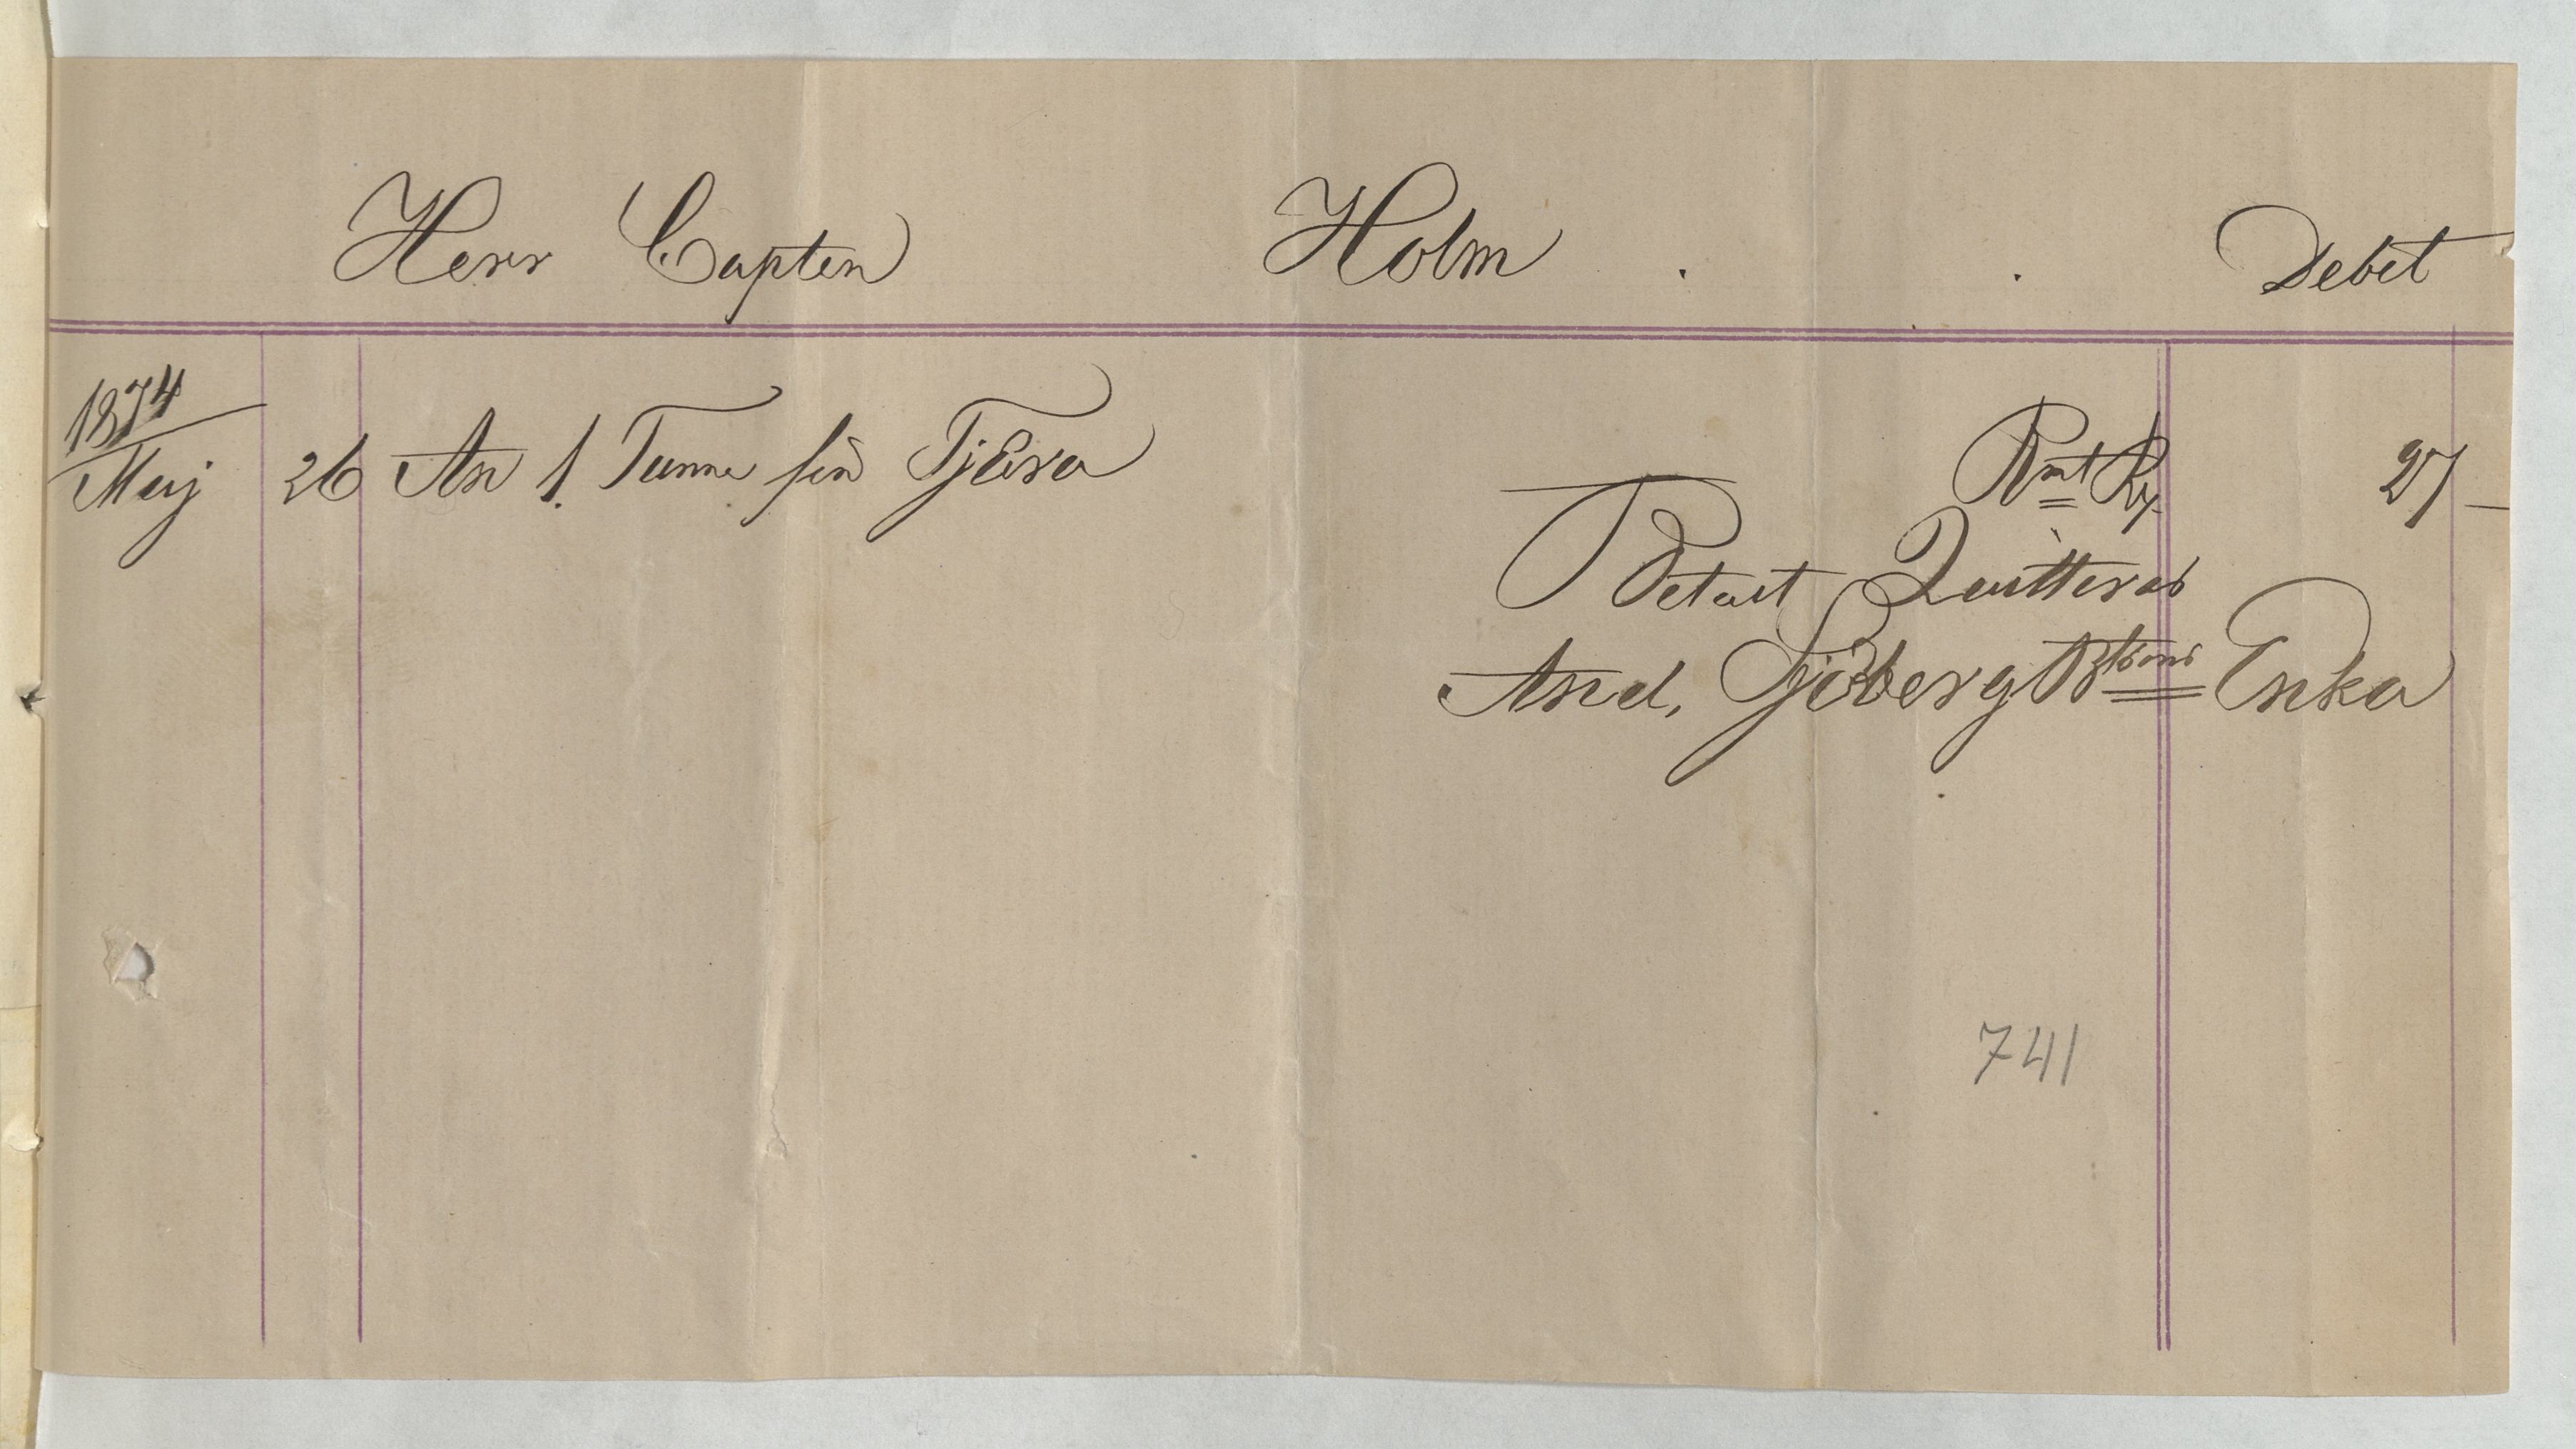 Herr Capten Holm . . Debet
1874
Maj 26 An 1. Tunna fin Tjära
Rmt Rg 27 —
Betalt Quitteras
And, Sjöberg Enka
741